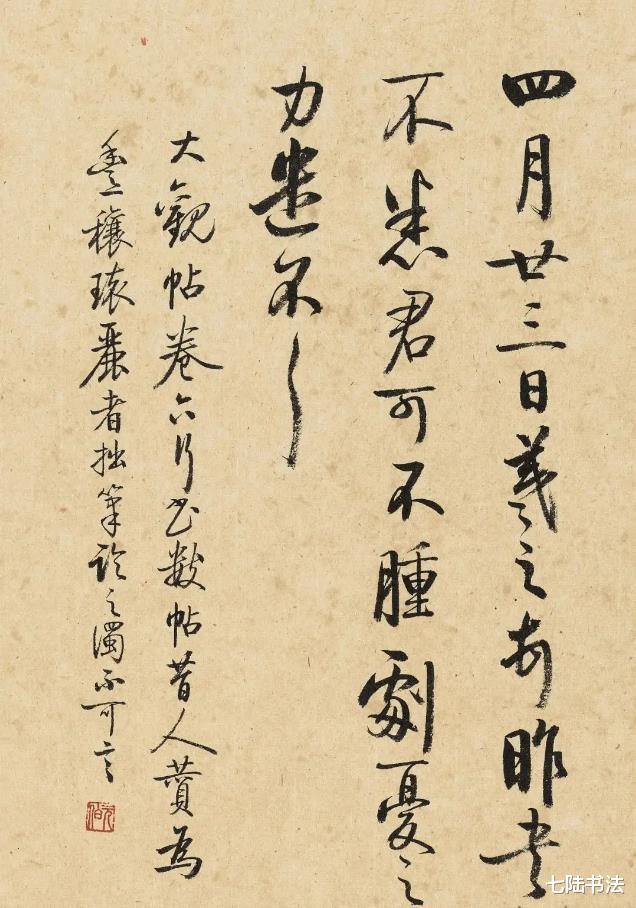 四月廿三日羲之頓首昨書
不悉君可不腫劇憂之
力遣不一一
大觀帖卷六行書數帖昔人贊為
豐穠瓌麗者拙筆臨之濁不可言
七陆书法